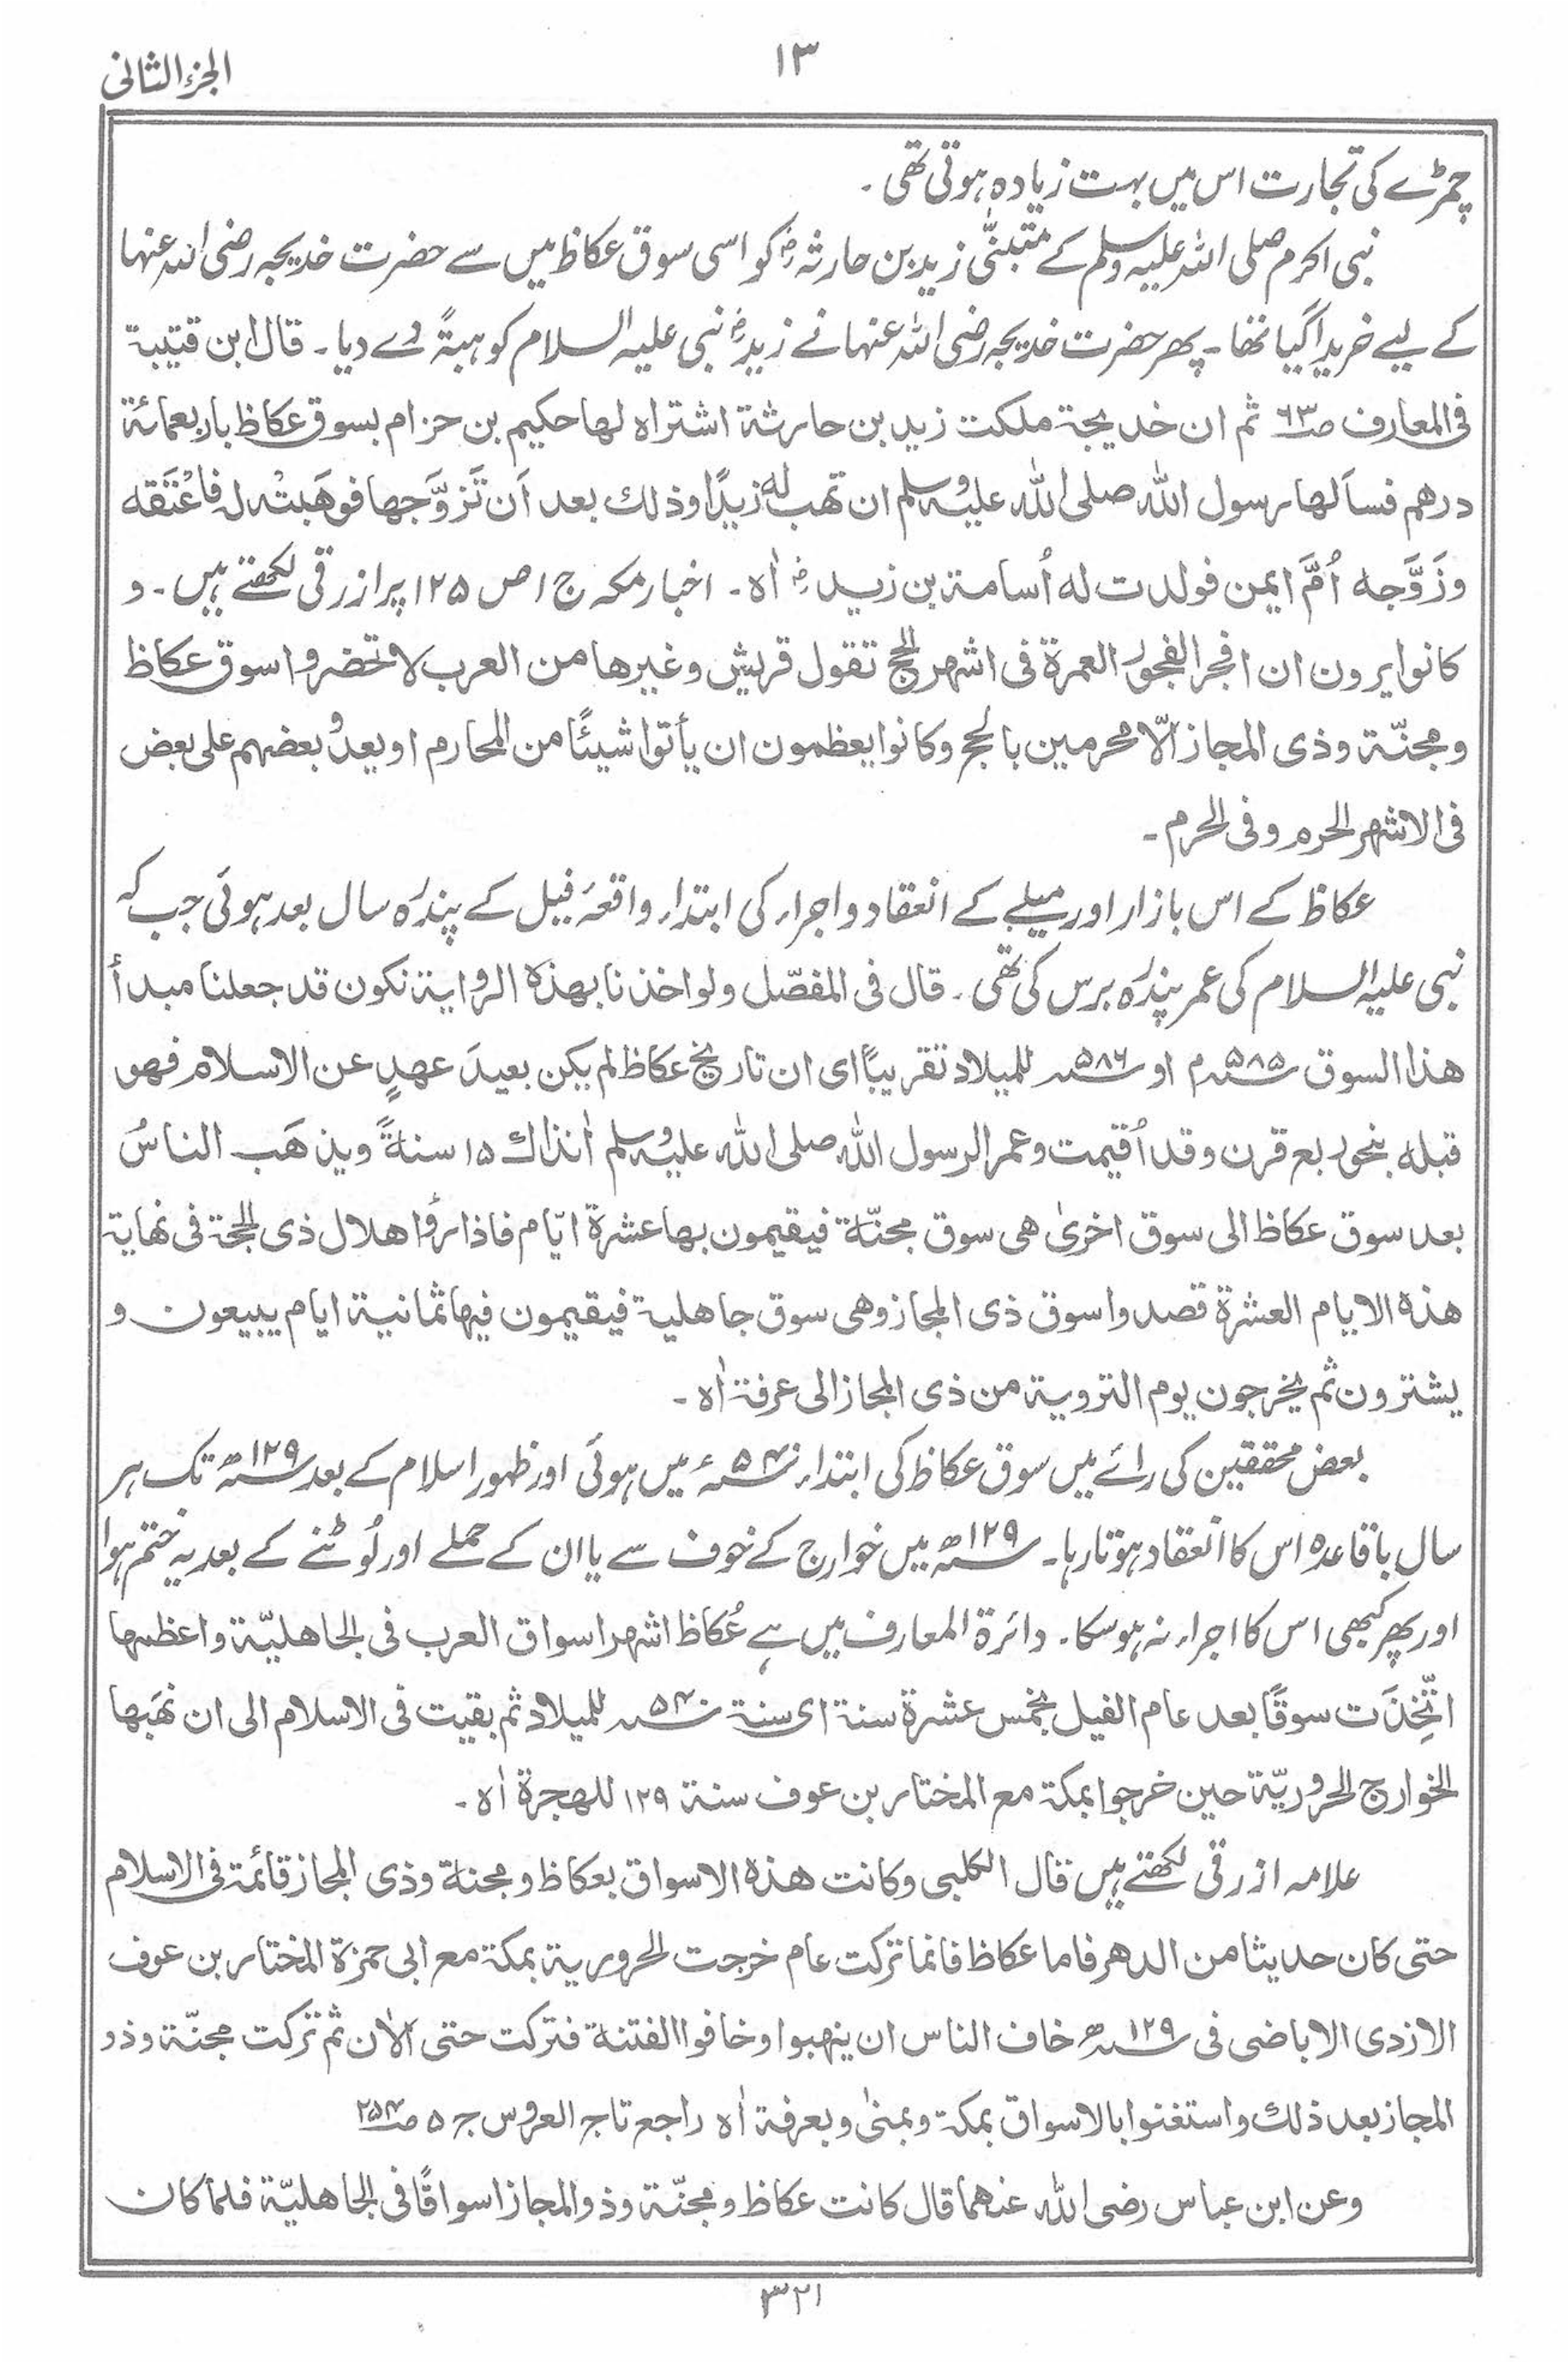 الجزء الثانی
۱۳
چمڑے کی تجارت اس میں بہت زیادہ ہوتی تھی ۔
نبی اکرم صلی اللہ علیہ وسلم کے متبنیّٰ زید بن حارثہؓ کو اسی سوق عکاظ میں سے حضرت خدیجہ رضی اللہ عنہا
کے لیے خریدا گیا تھا ۔ پھر حضرت خدیجہ رضی اللہ عنہا نے زیدؓ نبی علیہ السلام کو ہبۃً دے دیا ۔ قال ابن قتیبۃ
فی المعارف ص۶۳ ثم ان خدیجۃ ملکت زید بن حارثۃ اشتراہ لھا حکیم بن حزام بسوق عکاظ باربعمائۃ
درھم فسألھا رسول اللہ صلی اللہ علیہ وسلم ان تھب لہ زیدًا وذلك بعد اَن تَزوَّجھا فوھَبتْہ لہ فاَعْتَقہ
وزَوَّجہ اُمَّ ایمن فولدت لہ اُسامۃ بن زیدؓ اٰہ ۔ اخبار مکہ ج ۱ ص ۱۲۵ پر ازرقی لکھتے ہیں ۔ و
کانوا یرون ان افجر الفجور العمرۃ فی اشھر الحج تقول قریش وغیرھا من العرب لا تحضروا سوق عکاظ
ومجنّۃ وذی المجاز الّا محرمین بالحج وکانوا یعظمون ان یأتوا شیئًا من المحارم او یعدُو بعضھم علی بعض
فی الاشھر الحرم وفی الحرم ۔
عکاظ کے اس بازار اور میلے کے انعقاد و اجراء کی ابتداء واقعۂ فیل کے پندرہ سال بعد ہوئی جب کہ
نبی علیہ السلام کی عمر پندرہ برس کی تھی ۔ قال فی المفصّل ولو اخذنا بھذہ الروایۃ نکون قد جعلنا مبدأ
ھذا السوق ۵۸۵م او ۵۸۶ للمیلاد تقریبًا ای ان تاریخ عکاظ لم یکن بعیدَ عھدٍ عن الاسلام فھو
قبلہ بنحو ربع قرن وقد اُقیمت وعمر الرسول اللہ صلی اللہ علیہ وسلم اٰنذاك ۱۵ سنۃً ویذھَب الناسُ
بعد سوق عکاظ الی سوق اخریٰ ھی سوق مجنّۃ فیقیمون بھا عشرۃ ایّام فاذا رأوا ھلال ذی الحجۃ فی نھایۃ
ھذہ الایام العشرۃ قصدوا سوق ذی المجاز وھی سوق جاھلیۃ فیقیمون فیھا ثمانیۃ ایام یبیعون و
یشترون ثم یخرجون یوم الترویۃ من ذی المجاز الی عرفۃ اٰہ ۔
بعض محققین کی رائے میں سوق عکاظ کی ابتداء ۵۴۰ء میں ہوئی اور ظہور اسلام کے بعد ۱۲۹ھ تک ہر
سال باقاعدہ اس کا انعقاد ہوتا رہا ۔ ۱۲۹ھ میں خوارج کے خوف سے یا ان کے حملے اور لُوٹنے کے بعد یہ ختم ہوا
اور پھر کبھی اس کا اجراء نہ ہوسکا ۔ دائرۃ المعارف میں ہے عُکاظ اشھر اسواق العرب فی الجاھلیّۃ واعظمھا
اتّخِذَت سوقًا بعد عام الفیل بخمس عشرۃ سنۃ ای سنۃ ۵۴۰ للمیلاد ثم بقیت فی الاسلام الی ان نھَبھا
الخوارج الحروریّۃ حین خرجوا بمکۃ مع المختار بن عوف سنۃ ۱۲۹ للھجرۃ اٰہ ۔
علامہ ازرقی لکھتے ہیں قال الکلبی وکانت ھذہ الاسواق بعکاظ ومجنۃ وذی المجاز قائمۃ فی الاسلام
حتی کان حدیثا من الدھر فاما عکاظ فانما ترکت عام خرجت الحروریۃ بمکۃ مع ابی حمزۃ المختار بن عوف
الازدی الاباضی فی ۱۲۹ھ خاف الناس ان ینھبوا وخافوا الفتنۃ فترکت حتی الاٰن ثم ترکت مجنّۃ وذو
المجاز بعد ذلك واستغنوا بالاسواق بمکۃ وبمنیٰ وبعرفۃ اٰہ راجع تاج العروس ج ۵ ص۲۵۴
وعن ابن عباس رضی اللہ عنھما قال کانت عکاظ ومجنّۃ وذو المجاز اسواقًا فی الجاھلیّۃ فلما کان
۳۲۱